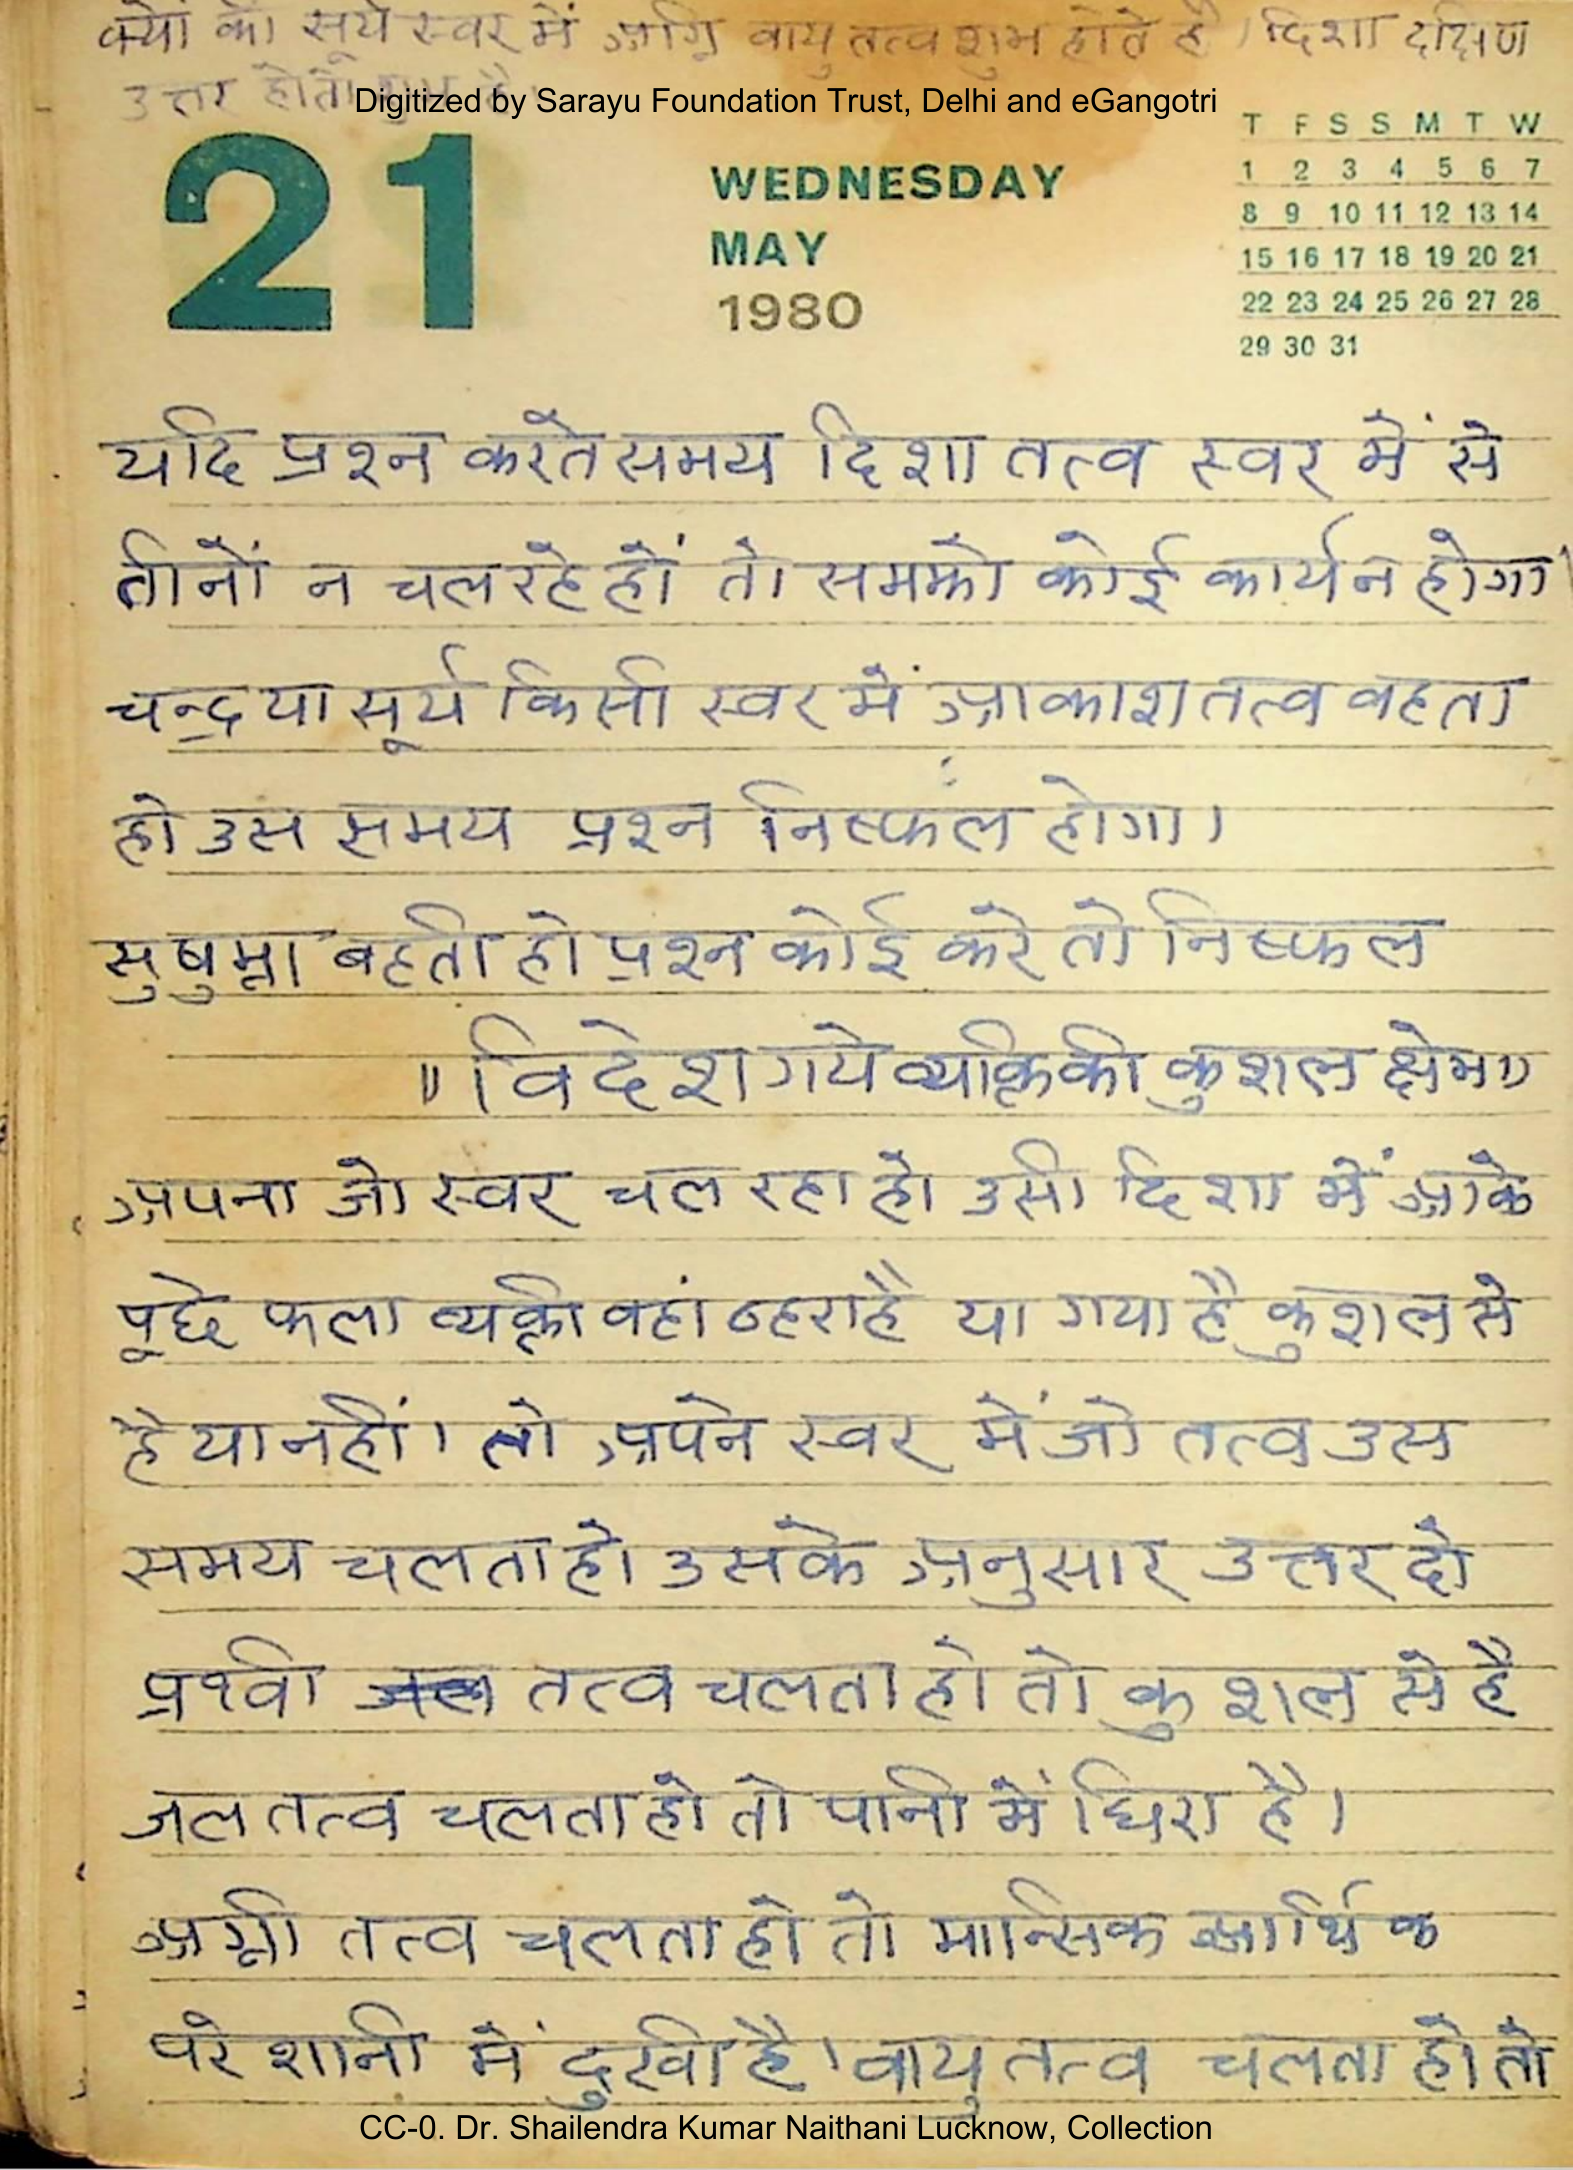 क्यों की सूर्य स्वर में अग्नि वायु तत्व शुभ होते है। दिशा दक्षिण
उत्तर होती शुभ है।
Digitized by Sarayu Foundation Trust, Delhi and eGangotri
21
WEDNESDAY
MAY
1980
T F S S M T W
1 2 3 4 5 6 7
8 9 10 11 12 13 14
15 16 17 18 19 20 21
22 23 24 25 26 27 28
29 30 31
यदि प्रश्न करते समय दिशा तत्व स्वर में से
तीनों न चल रहे हों तो समझो कोई कार्य न होगा।
चन्द्र या सूर्य किसी स्वर में आकाश तत्व वहता
हो उस समय प्रश्न निष्फल होगा।
सुषुम्ना बहती हो प्रश्न कोई करे तो निष्फल
"विदेश गये व्यक्ति की कुशल क्षेम"
अपना जो स्वर चल रहा हो उसी दिशा में आके
पूछे फला व्यक्ती वहां ठहरा है या गया है कुशल से
है या नहीं। तो अपने स्वर में जो तत्व उस
समय चलता हो उसके अनुसार उत्तर दो
प्रथ्वी तत्व चलता हो तो कुशल से है
जल तत्व चलता हो तो पानी में घिरा है।
अग्नी तत्व चलता हो तो मान्सिक आर्थिक
परेशानी में दुखी है। वायु तत्व चलता हो तो
CC-0. Dr. Shailendra Kumar Naithani Lucknow, Collection